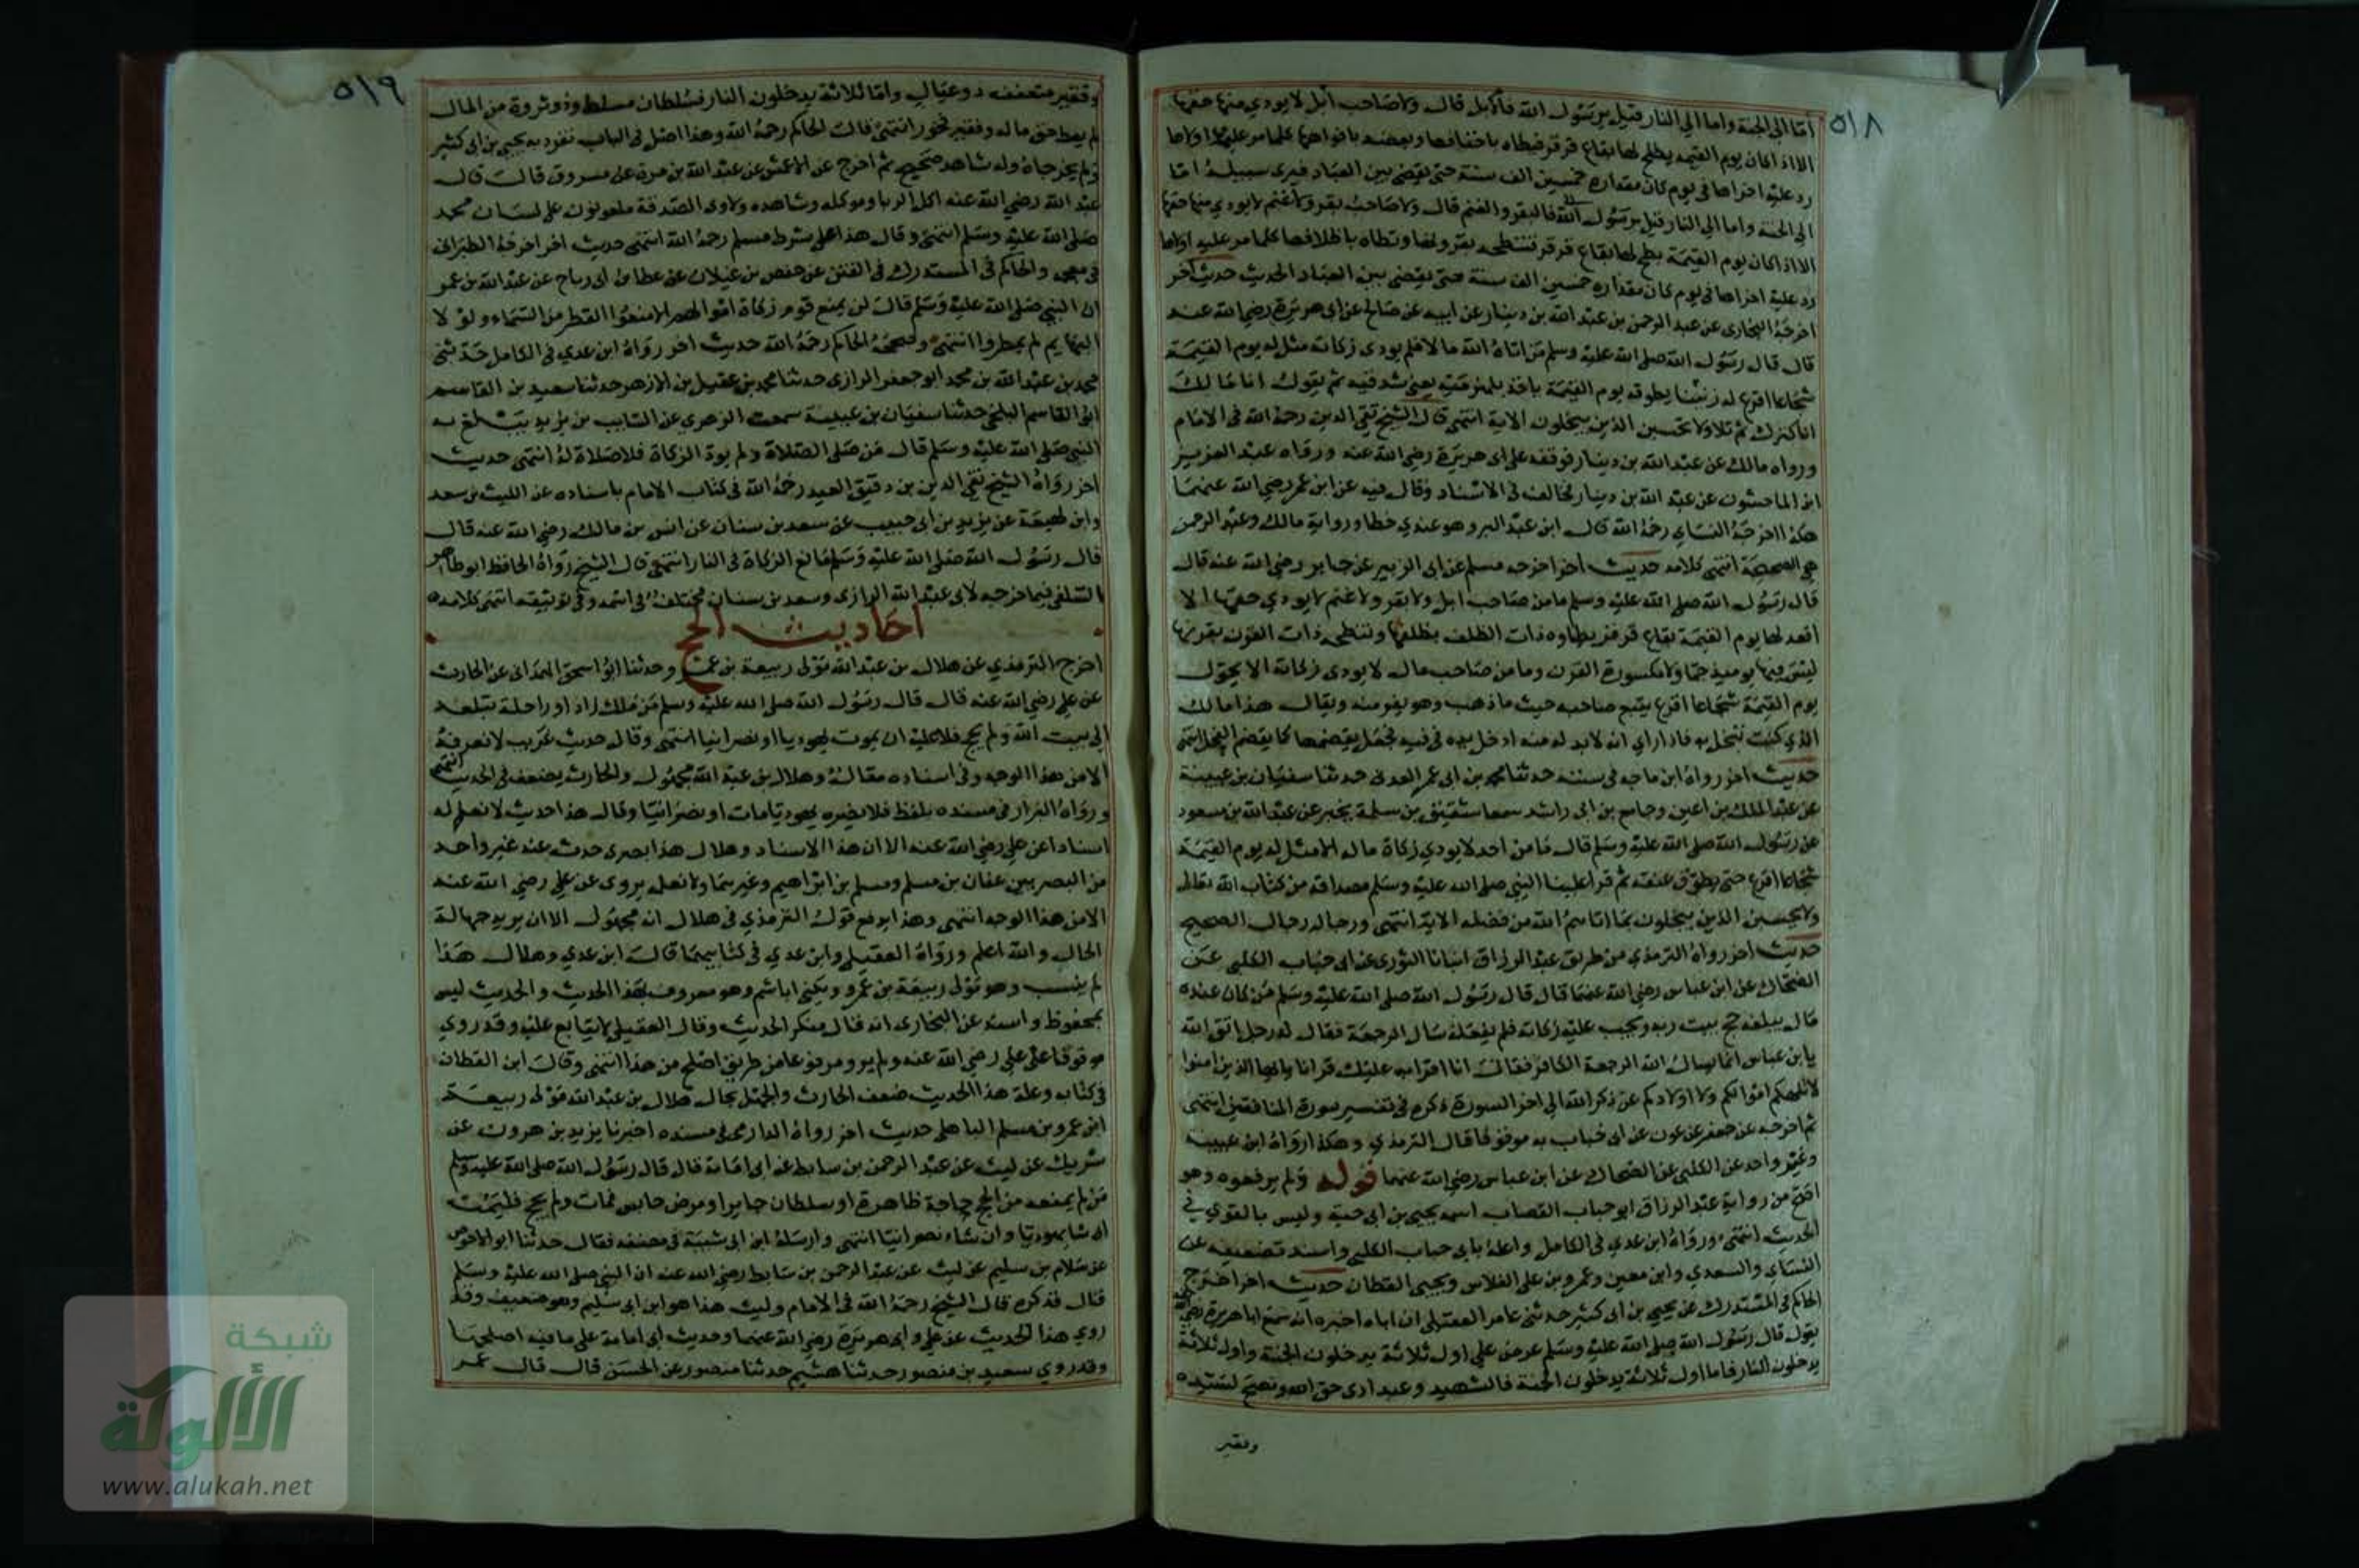 ٥١٨
اما الى الجنة واما الى النار قيل يرسول الله فالابل قال ولا صاحب ابل لا يودي منها حقها
الا اذا كان يوم القيمة بطح لها بقاع قرقر فتطاه باخفافها وتعضه بافواهها كلما مر عليه اولاها
رد عليه اخراها في يوم كان مقداره خمسين الف سنة حتى يقضى بين العباد فيرى سبيله اما
الى الجنة واما الى النار قيل يرسول الله فالبقر والغنم قال ولا صاحب بقر ولا غنم لا يودي منها حقها
الا اذا كان يوم القيمة بطح لها بقاع قرقر فتنطحه بقرونها وتطاه باظلافها كلما مر عليه اولاها
رد عليه اخراها في يوم كان مقداره خمسين الف سنة حتى يقضى بين العباد الحديث حديث اخر
اخرجه البخارى عن عبد الرحمن بن عبد الله بن دينار عن ابيه عن صالح عن ابى هريرة رضي الله عنه
قال قال رسول الله صلى الله عليه وسلم من اتاه الله مالا فلم يودى زكاته مثل له يوم القيمة
شجاعا اقرع له زبيبتا يطوقه يوم القيمة ياخذ بلهزمتيه يعني شدقيه ثم يقول انا مالك
انا كنزك ثم تلا ولا تحسبن الذين يبخلون الاية انتهى قال الشيخ تقي الدين رحمه الله فى الامام
ورواه مالك عن عبد الله بن دينار فوقفه على ابى هريرة رضي الله عنه ورواه عبد العزيز
ابن الماجشون عن عبد الله بن دينار فخالف فى الاسناد وقال فيه عن ابن عمر رضي الله عنهما
هكذا اخرجه النساي رحمه الله قال ابن عبد البر وهو عندي خطا ورواية مالك وعبد الرحمن
هي الصحيحة انتهى كلامه حديث اخر اخرجه مسلم عن ابى الزبير عن جابر رضي الله عنه قال
قال رسول الله صلى الله عليه وسلم ما من صاحب ابل ولا بقر ولا غنم لا يودي حقها الا
اقعد لها يوم القيمة بقاع قرقر يطاوه ذات الظلف بظلفها وتنطحه ذات القرن بقرنها
ليس فيها يوميذ جما ولا مكسورة القرن وما من صاحب مال لا يودى زكاته الا يحول
يوم القيمة شجاعا اقرع يتبع صاحبه حيث ما ذهب وهو يفر منه ويقال هذا مالك
الذي كنت تبخل به فاذا راي انه لابد له منه ادخل يده فى فيه فجعل يقضمها كما يقضم الفحل انتهى
حديث اخر رواه ابن ماجه فى سننه حدثنا محمد بن ابى عمر العدنى حدثنا سفيان بن عيينة
عن عبد الملك بن اعين وجامع بن ابى راشد سمعا شقيق بن سلمة يخبر عن عبد الله بن مسعود
عن رسول الله صلى الله عليه وسلم قال ما من احد لا يودي زكاة ماله الا مثل له يوم القيمة
شجاعا اقرع حتى يطوق عنقه ثم قرا علينا النبي صلى الله عليه وسلم مصداقه من كتاب الله تعالى
ولا يحسبن الذين يبخلون بما اتاهم الله من فضله الاية انتهى ورجاله رجال الصحيح
حديث اخر رواه الترمذي من طريق عبد الرزاق انبانا الثورى عن ابى حباب الكلبى عن
الضحاك عن ابن عباس رضي الله عنهما قال قال رسول الله صلى الله عليه وسلم من كان عنده
مال يبلغه حج بيت ربه ويجب عليه زكاته فلم يفعله سال الرجعة فقال له رجل اتق الله
يا بن عباس انما يسال الله الرجعة الكافر فقال انا اقرا به عليك قرانا يا ايها الذين امنوا
لا تلهكم اموالكم ولا اولادكم عن ذكر الله الى اخر السورة ذكره فى تفسير سورة المنافقين انتهى
ثم اخرجه عن جعفر عن عون عن ابى حباب به موقوفا قال الترمذي وهكذا رواه ابن عيينة
وغير واحد عن الكلبى عن الضحاك عن ابن عباس رضي الله عنهما قوله ولم يرفعوه وهو
اصح من رواية عبد الرزاق ابو حباب القصاب اسمه يحيى بن ابى حية وليس بالقوي في
الحديث انتهى ورواه ابن عدي فى الكامل واعله بابى حباب الكلبى واسند تضعيفه عن
النساي والسعدي وابن معين وعمرو بن على الفلاس ويحيى القطان حديث اخر اخرج
الحاكم فى المستدرك عن يحيى بن ابى كثير حدثنى عامر العقيلى ان اباه اخبره انه سمع ابا هريرة رضي الله
يقول قال رسول الله صلى الله عليه وسلم عرض علي اول ثلاثة يدخلون الجنة واول ثلاثة
يدخلون النار فاما اول ثلاثة يدخلون الجنة فالشهيد وعبد ادى حق الله ونصح لسيده
وفقير
٥١٩
وفقير متعفف ذو عيال واما ثلاثة يدخلون النار فسلطان مسلط وذو ثروة من المال
لم يعط حق ماله وفقير فخور انتهى قال الحاكم رحمه الله وهذا اصل فى الباب تفرد به يحيى بن ابى كثير
ولم يخرجاه وله شاهد صحيح ثم اخرج عن الاعمش عن عبد الله بن مرة عن مسروق قال قال
عبد الله رضي الله عنه اكل الربا وموكله وشاهده ولاوى الصدقة ملعونون على لسان محمد
صلى الله عليه وسلم انتهى وقال هذا على شرط مسلم رحمه الله انتهى حديث اخر اخرجه الطبرانى
فى معجمه والحاكم فى المستدرك فى الفتن عن حفص بن غيلان عن عطا بن ابى رباح عن عبد الله بن عمر
ان النبي صلى الله عليه وسلم قال لن يمنع قوم زكاة اموالهم الا منعوا القطر من السماء ولولا
البهايم لم يمطروا انتهى وصححه الحاكم رحمه الله حديث اخر رواه ابن عدي فى الكامل حدثنى
محمد بن عبد الله بن محمد ابو جعفر الرازى حدثنا محمد بن عقيل بن الازهر حدثنا سعيد بن القاسم
ابو القاسم البلخى حدثنا سفيان بن عيينة سمعت الزهري عن السايب بن يزيد يبلغ به
النبي صلى الله عليه وسلم قال من صلى الصلاة ولم يود الزكاة فلا صلاة له انتهى حديث
اخر رواه الشيخ تقي الدين بن دقيق العيد رحمه الله فى كتاب الامام باسناده عن الليث بن سعد
وابن لهيعة عن يزيد بن ابى حبيب عن سعد بن سنان عن انس بن مالك رضي الله عنه قال
قال رسول الله صلى الله عليه وسلم مانع الزكاة فى النار انتهى قال الشيخ رواه الحافظ ابو طاهر
السلفى فيما خرجه لابى عبد الله الرازى وسعد بن سنان مختلف فى اسمه وفى توثيقه انتهى كلامه
احاديث الحج
اخرج الترمذي عن هلال بن عبد الله مولى ربيعة بن عمرو حدثنا ابو اسحق الهمدانى عن الحارث
عن علي رضي الله عنه قال قال رسول الله صلى الله عليه وسلم من ملك زادا وراحلة تبلغه
الى بيت الله ولم يحج فلا عليه ان يموت يهوديا او نصرانيا انتهى وقال حديث غريب لا نعرفه
الا من هذا الوجه وفى اسناده مقال وهلال بن عبد الله مجهول والحارث يضعف فى الحديث انتهى
ورواه البزار فى مسنده بلفظ فلا يضره يهوديا مات او نصرانيا وقال هذا حديث لا نعلم له
اسنادا عن علي رضي الله عنه الا ان هذا الاسناد وهلال هذا بصرى حدث عنه غير واحد
من البصريين عفان بن مسلم ومسلم بن ابراهيم وغيرهما ولا نعلمه يروى عن علي رضي الله عنه
الا من هذا الوجه انتهى وهذا يدفع قول الترمذي فى هلال انه مجهول الا ان يريد جهالة
الحال والله اعلم ورواه العقيلى وابن عدي فى كتابيهما قال ابن عدي وهلال هذا
لم ينسب وهو مولى ربيعة بن عمرو ويكنى ابا هاشم وهو معروف بهذا الحديث والحديث ليس
بمحفوظ واسند عن البخارى انه قال منكر الحديث وقال العقيلى لا يتابع عليه وقد روي
موقوفا على علي رضي الله عنه ولم يرو مرفوعا من طريق اصلح من هذا انتهى وقال ابن القطان
فى كتابه وعلة هذا الحديث ضعف الحارث والجهل بحال هلال بن عبد الله مولى ربيعة
ابن عمرو بن مسلم الباهلى حديث اخر رواه الدارمى فى مسنده اخبرنا يزيد بن هرون عن
شريك عن ليث عن عبد الرحمن بن سابط عن ابى امامة قال قال رسول الله صلى الله عليه وسلم
من لم يمنعه من الحج حاجة ظاهرة او سلطان جاير او مرض حابس فمات ولم يحج فليمت
ان شا يهوديا وان شاء نصرانيا انتهى وارسله ابن ابى شيبة فى مصنفه فقال حدثنا ابو الاحوص
عن سلام بن سليم عن ليث عن عبد الرحمن بن سابط رضي الله عنه ان النبي صلى الله عليه وسلم
قال فذكره قال الشيخ رحمه الله فى الامام وليث هذا هو ابن ابى سليم وهو ضعيف وقد
روي هذا الحديث عن علي وابى هريرة رضي الله عنهما وحديث ابى امامة على ما فيه اصلحها
وقد روي سعيد بن منصور حدثنا هشيم حدثنا منصور عن الحسن قال قال عمر
شبكة
الألوكة
www.alukah.net